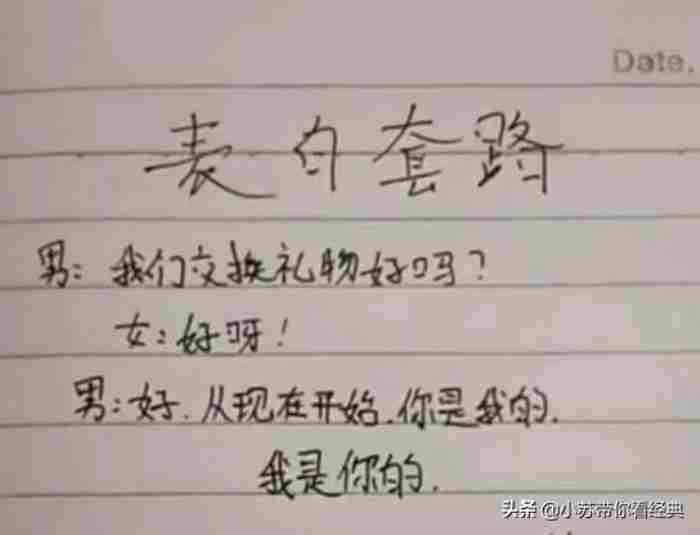 Date.
表白套路
男：我们交换礼物好吗？
女：好呀！
男：好.从现在开始.你是我的.
我是你的.
头条 @小苏带你看经典